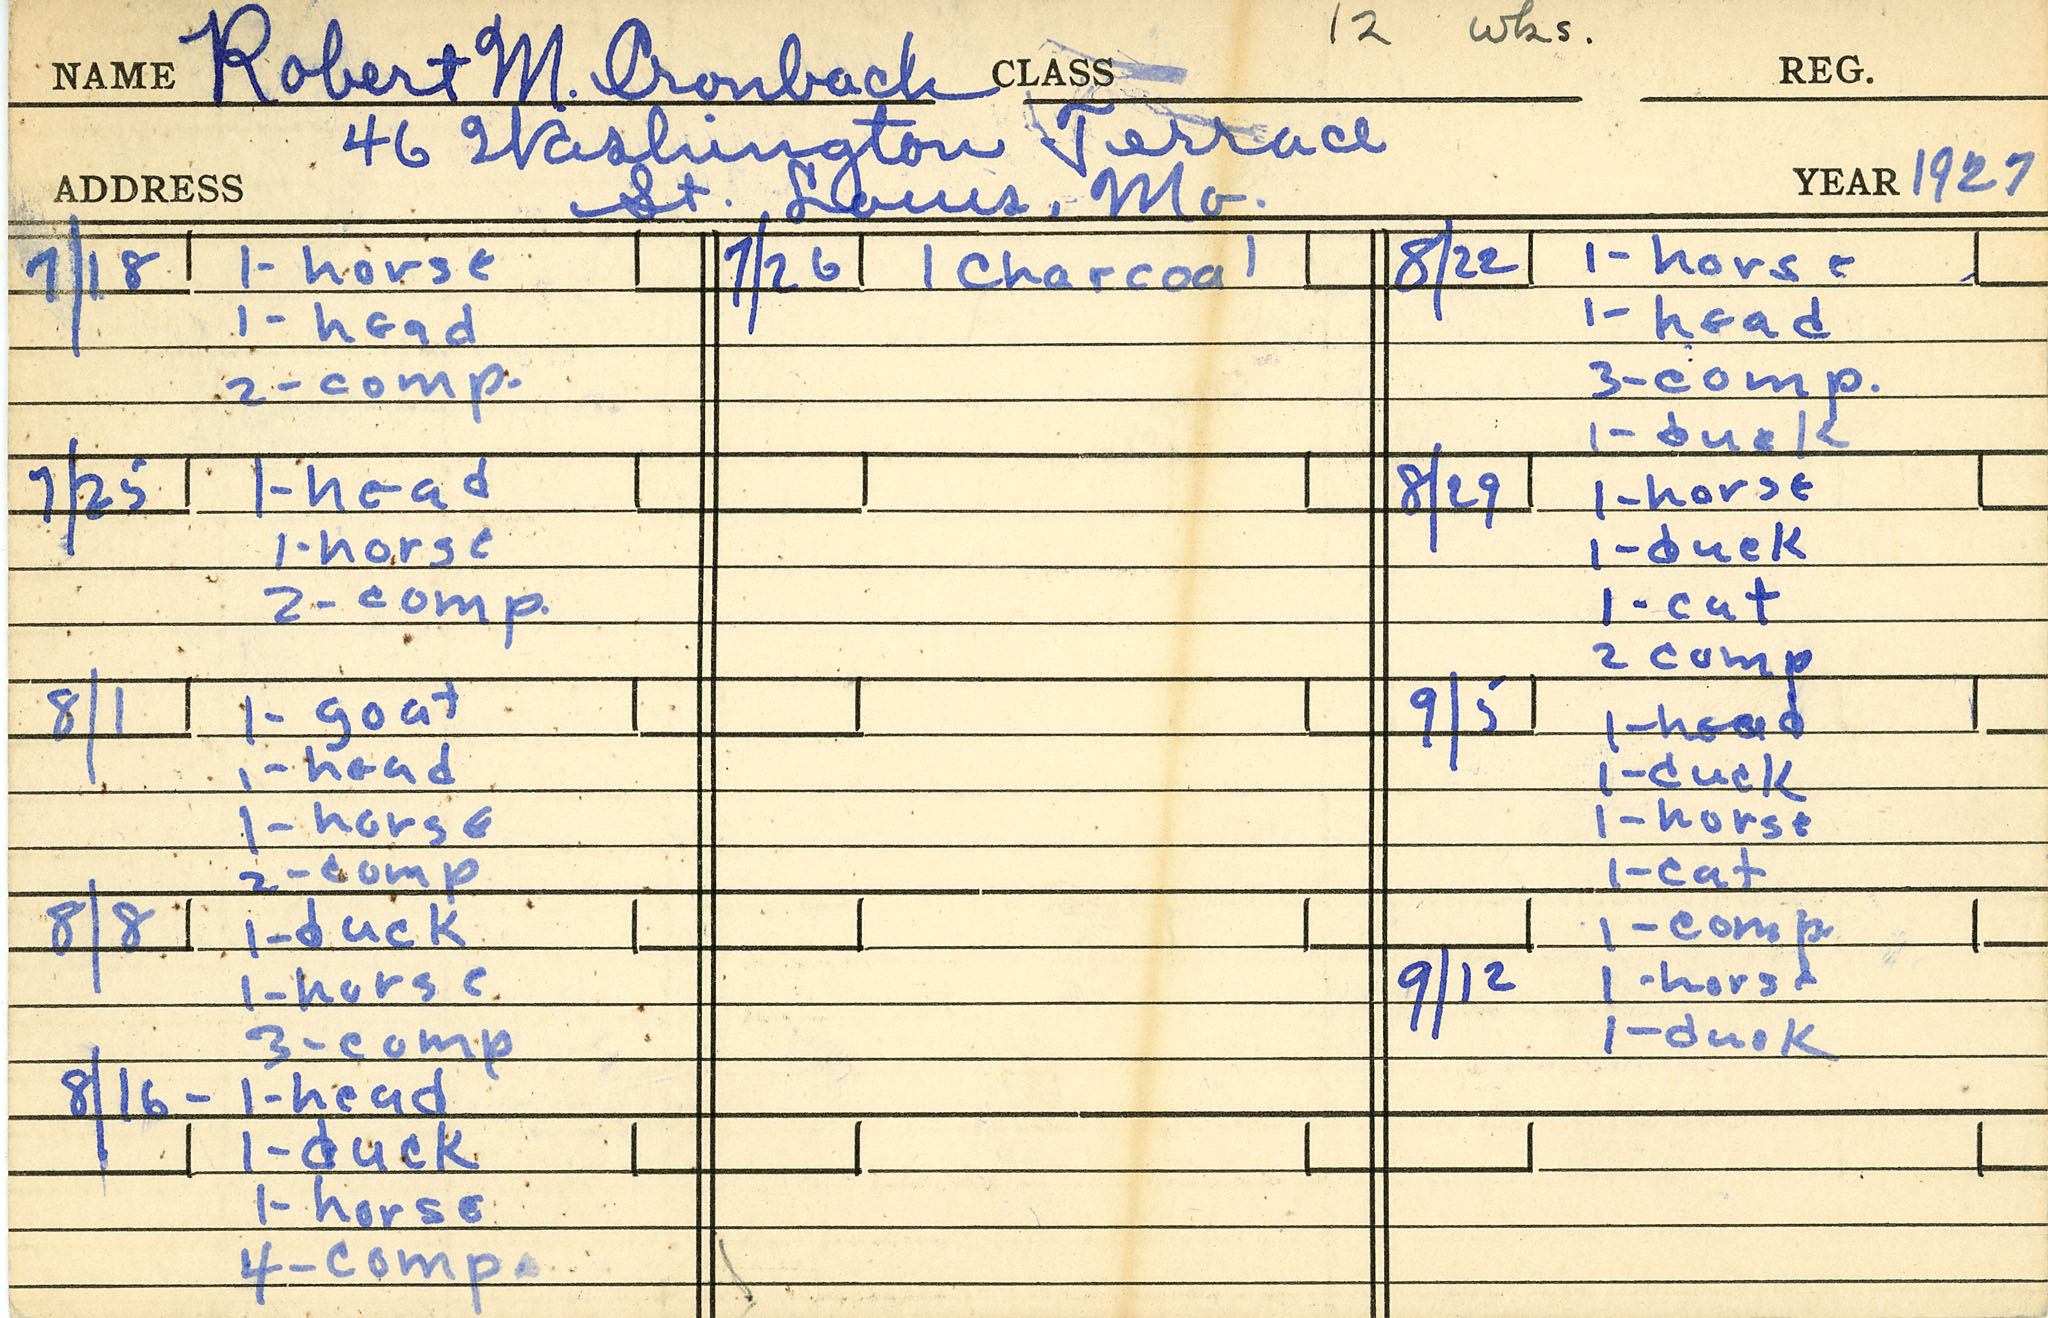 12 wks.
NAME Robert M. Cronbach CLASS REG.
46 Washington Terrace
ADDRESS St. Louis, Mo. YEAR 1927
7/18 1- horse
1- head
2- comp.
7/25 1- head
1- horse
2- comp.
8/1 1- goat
1- head
1- horse
2- comp
8/8 1- duck
1- horse
3- comp
8/16 - 1- head
1- duck
1- horse
4- comp.
7/26 1 charcoal
8/22 1- horse
1- head
3- comp.
1- duck
8/29 1- horse
1- duck
1- cat
2 comp
9/5 1- head
1- duck
1- horse
1- cat
1- comp.
9/12 1- horse
1- duck